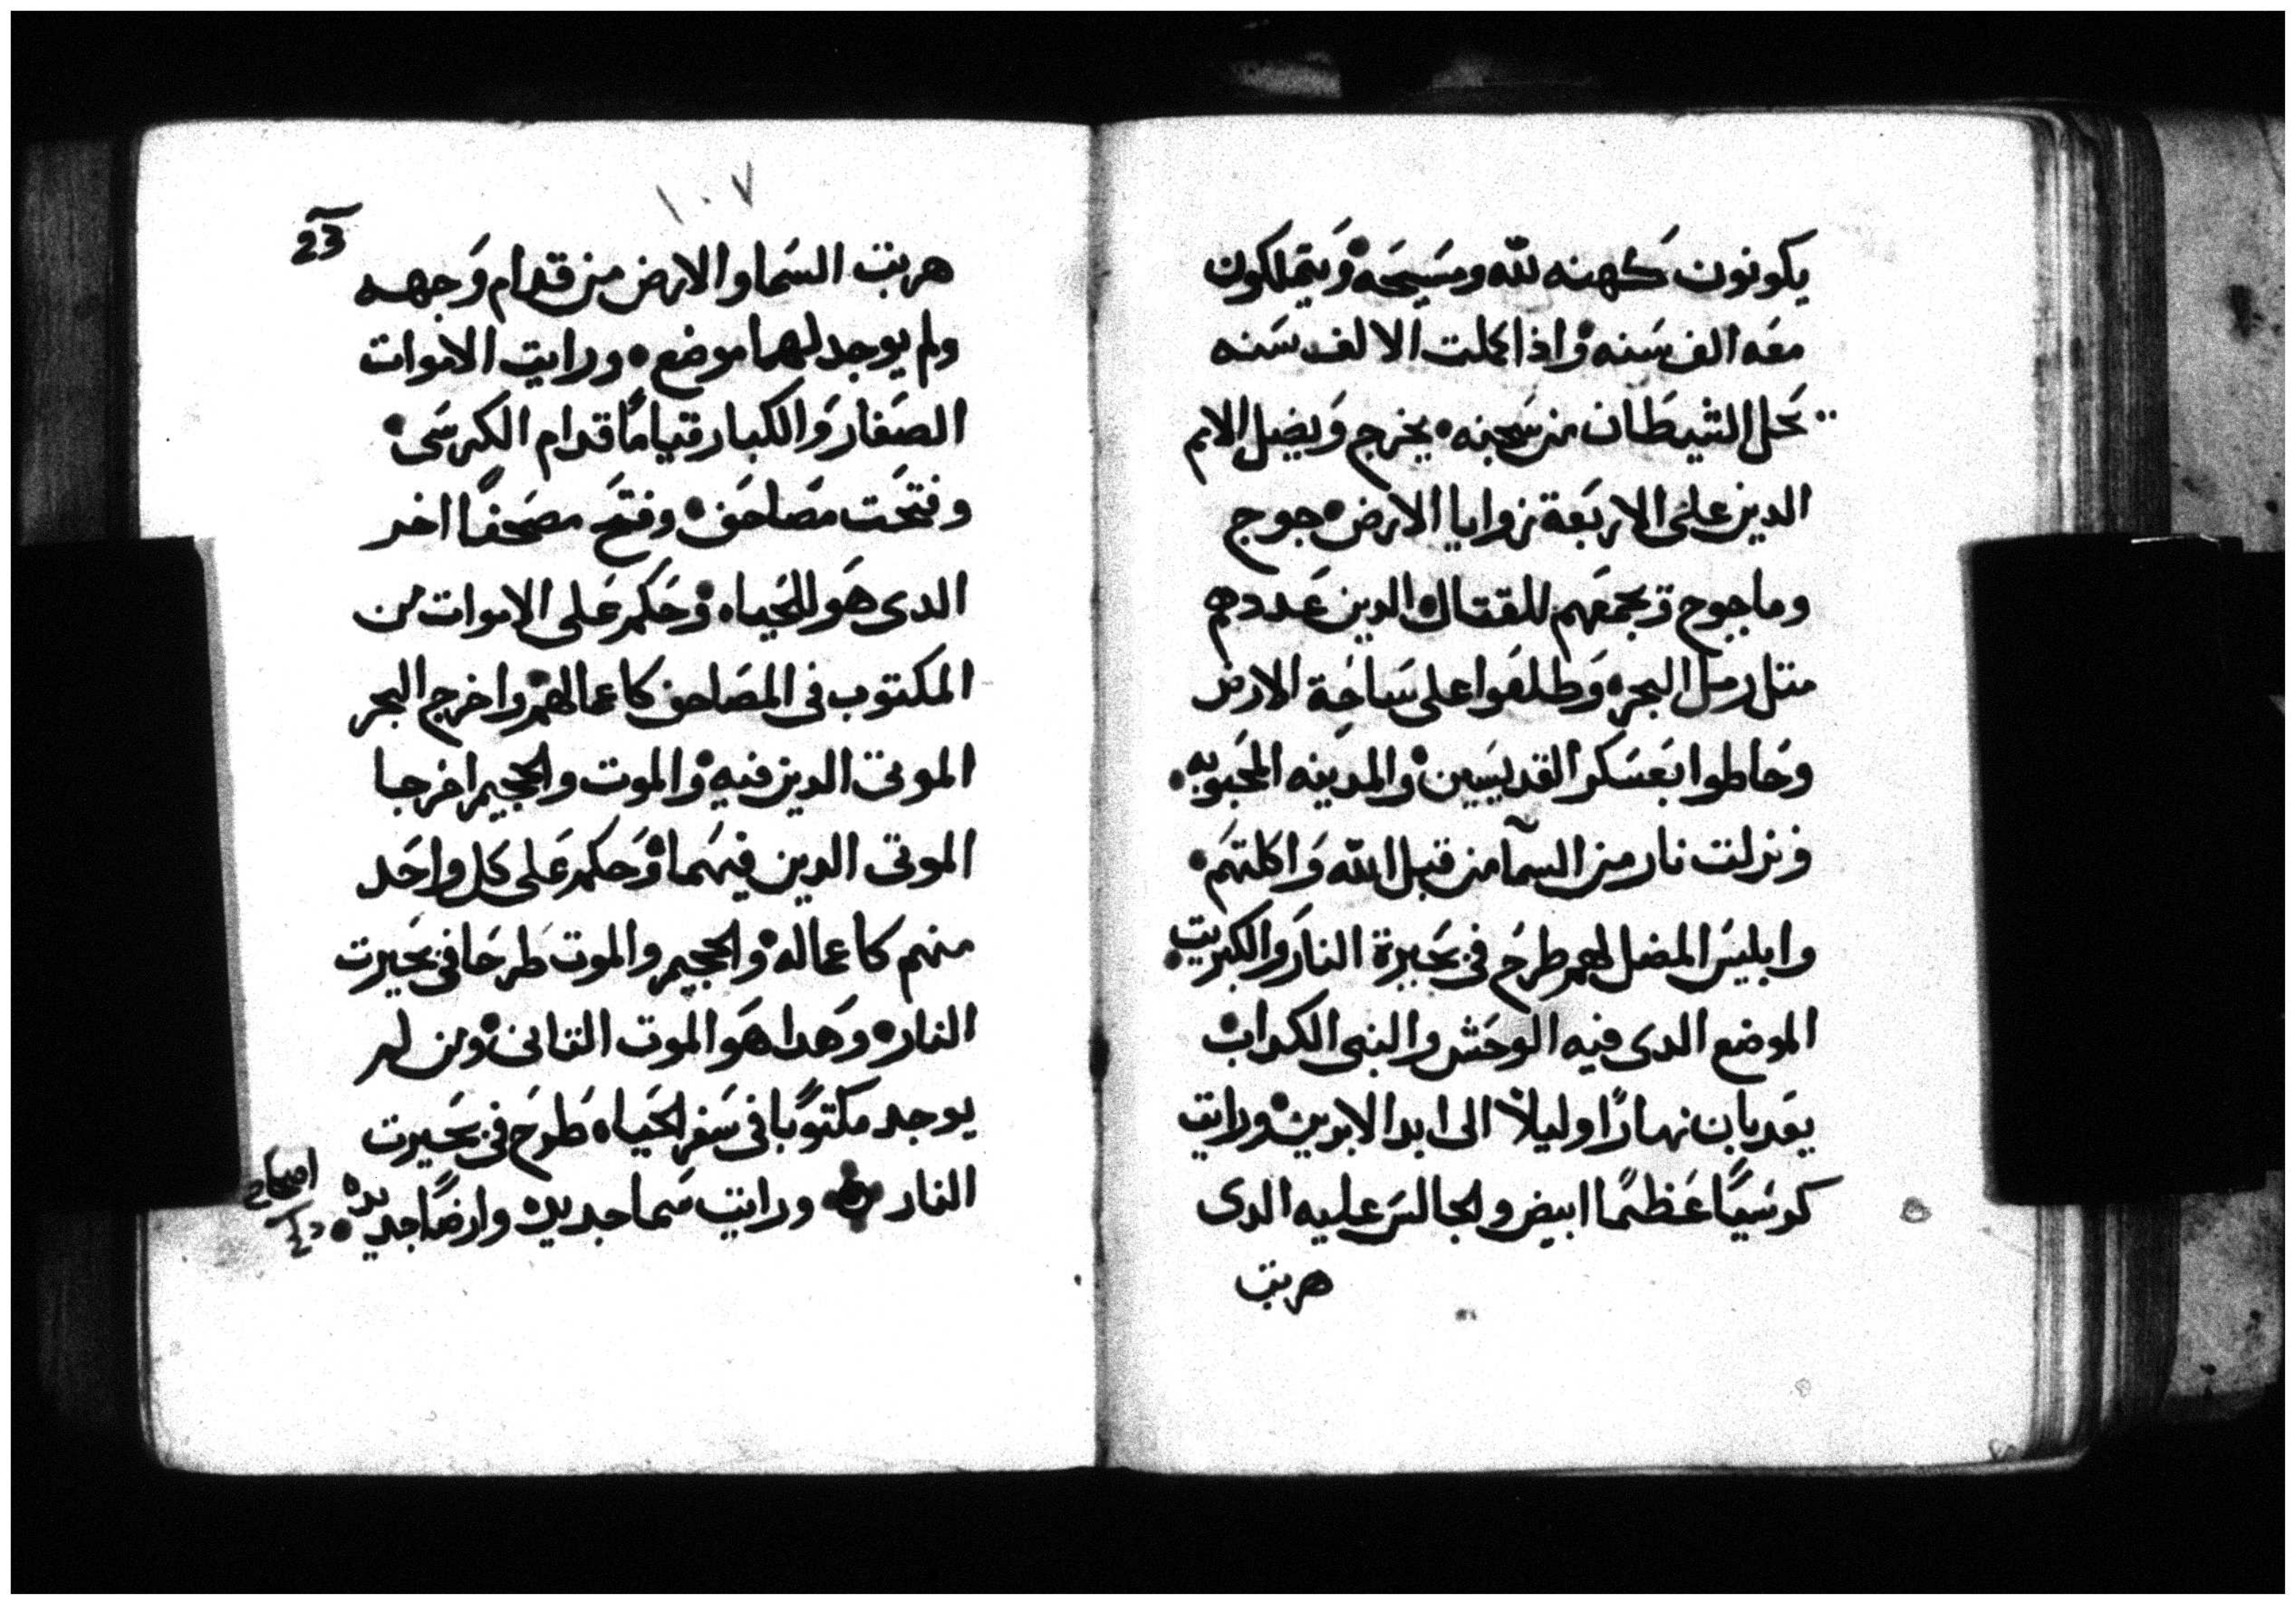 يكونون كهنه لله ومسَيحَه وَيتملكون
معَه الف سَنه واذا كملت الالف سَنه
تحَل الشيطان من سَجنه يخرج وَيضل الامم
الدين على الاربَعة زوايا الارض جوج
وماجوج تجمعَهم للقتال الدين عَددهم
متل رمل البحر وَطلعَوا على سَاحَة الارض
وحَاطوا بعَسَكر القديسَين والمدينه المحَبوبه
ونزلت نار من السمآ من قبل الله وَاكلتهَم
وابليسَ المضل لهم طرحَ في بحَيرة النار والكبريت
الموضع الدى فيه الوحَش والنبى الكداب
يعَدبان نهارًا وليلاً الى ابد الابدين ورايت
كرسَيًا عَظيمًا ابيض والجالسَ عليه الدى
هربت
١٠٧
23
هربت السَما والارض من قدام وَجهه
ولم يوجد لهما موضع ورايت الاموات
الصَغار وَالكبار قيامًا قدام الكرسَى
وفتحَت مصَاحف وفتحَ مصَحفًا اخر
الدى هَو للحَياه وحَكم عَلى الاموات من
المكتوب فى المصَاحف كاعمالهم واخرج البحر
الموتى الدين فيه والموت والجحيم اخرجا
الموتى الدين فيهَما وحَكم عَلى كل واحَد
منهم كاعماله والجحيم والموت طرحَا فى بحَيرت
النار وهَدا هَو الموت التانى ومن لم
يوجد مكتوبًا فى سَفر الحَياه طَرحَ فى بحَيرت
النار ورايت سَما جديده وارضًا جديده
اصحاح